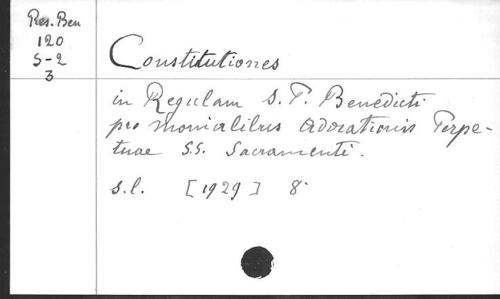 Res. Ben
120
S-2
3
Constitutiones
in Regulam S. P. Benedicti
pro monialibus Adorationis Perpe-
tuae S.S. Sacramenti.
s.l. [1929] 8°